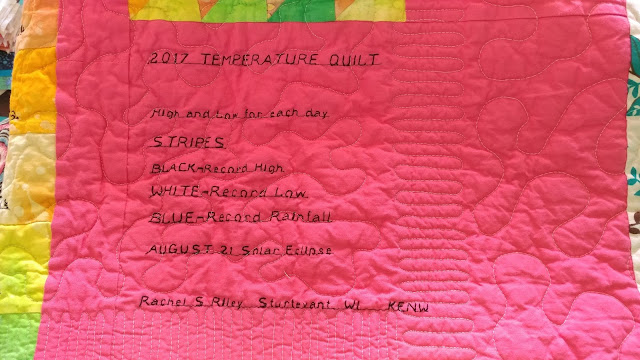 2017 TEMPERATURE QUILT
High and Low for each day
STRIPES
BLACK-Record High
WHITE-Record Low
BLUE-Record Rainfall
AUGUST 21 Solar Eclipse
Rachel S Riley Sturtevant WI KENW